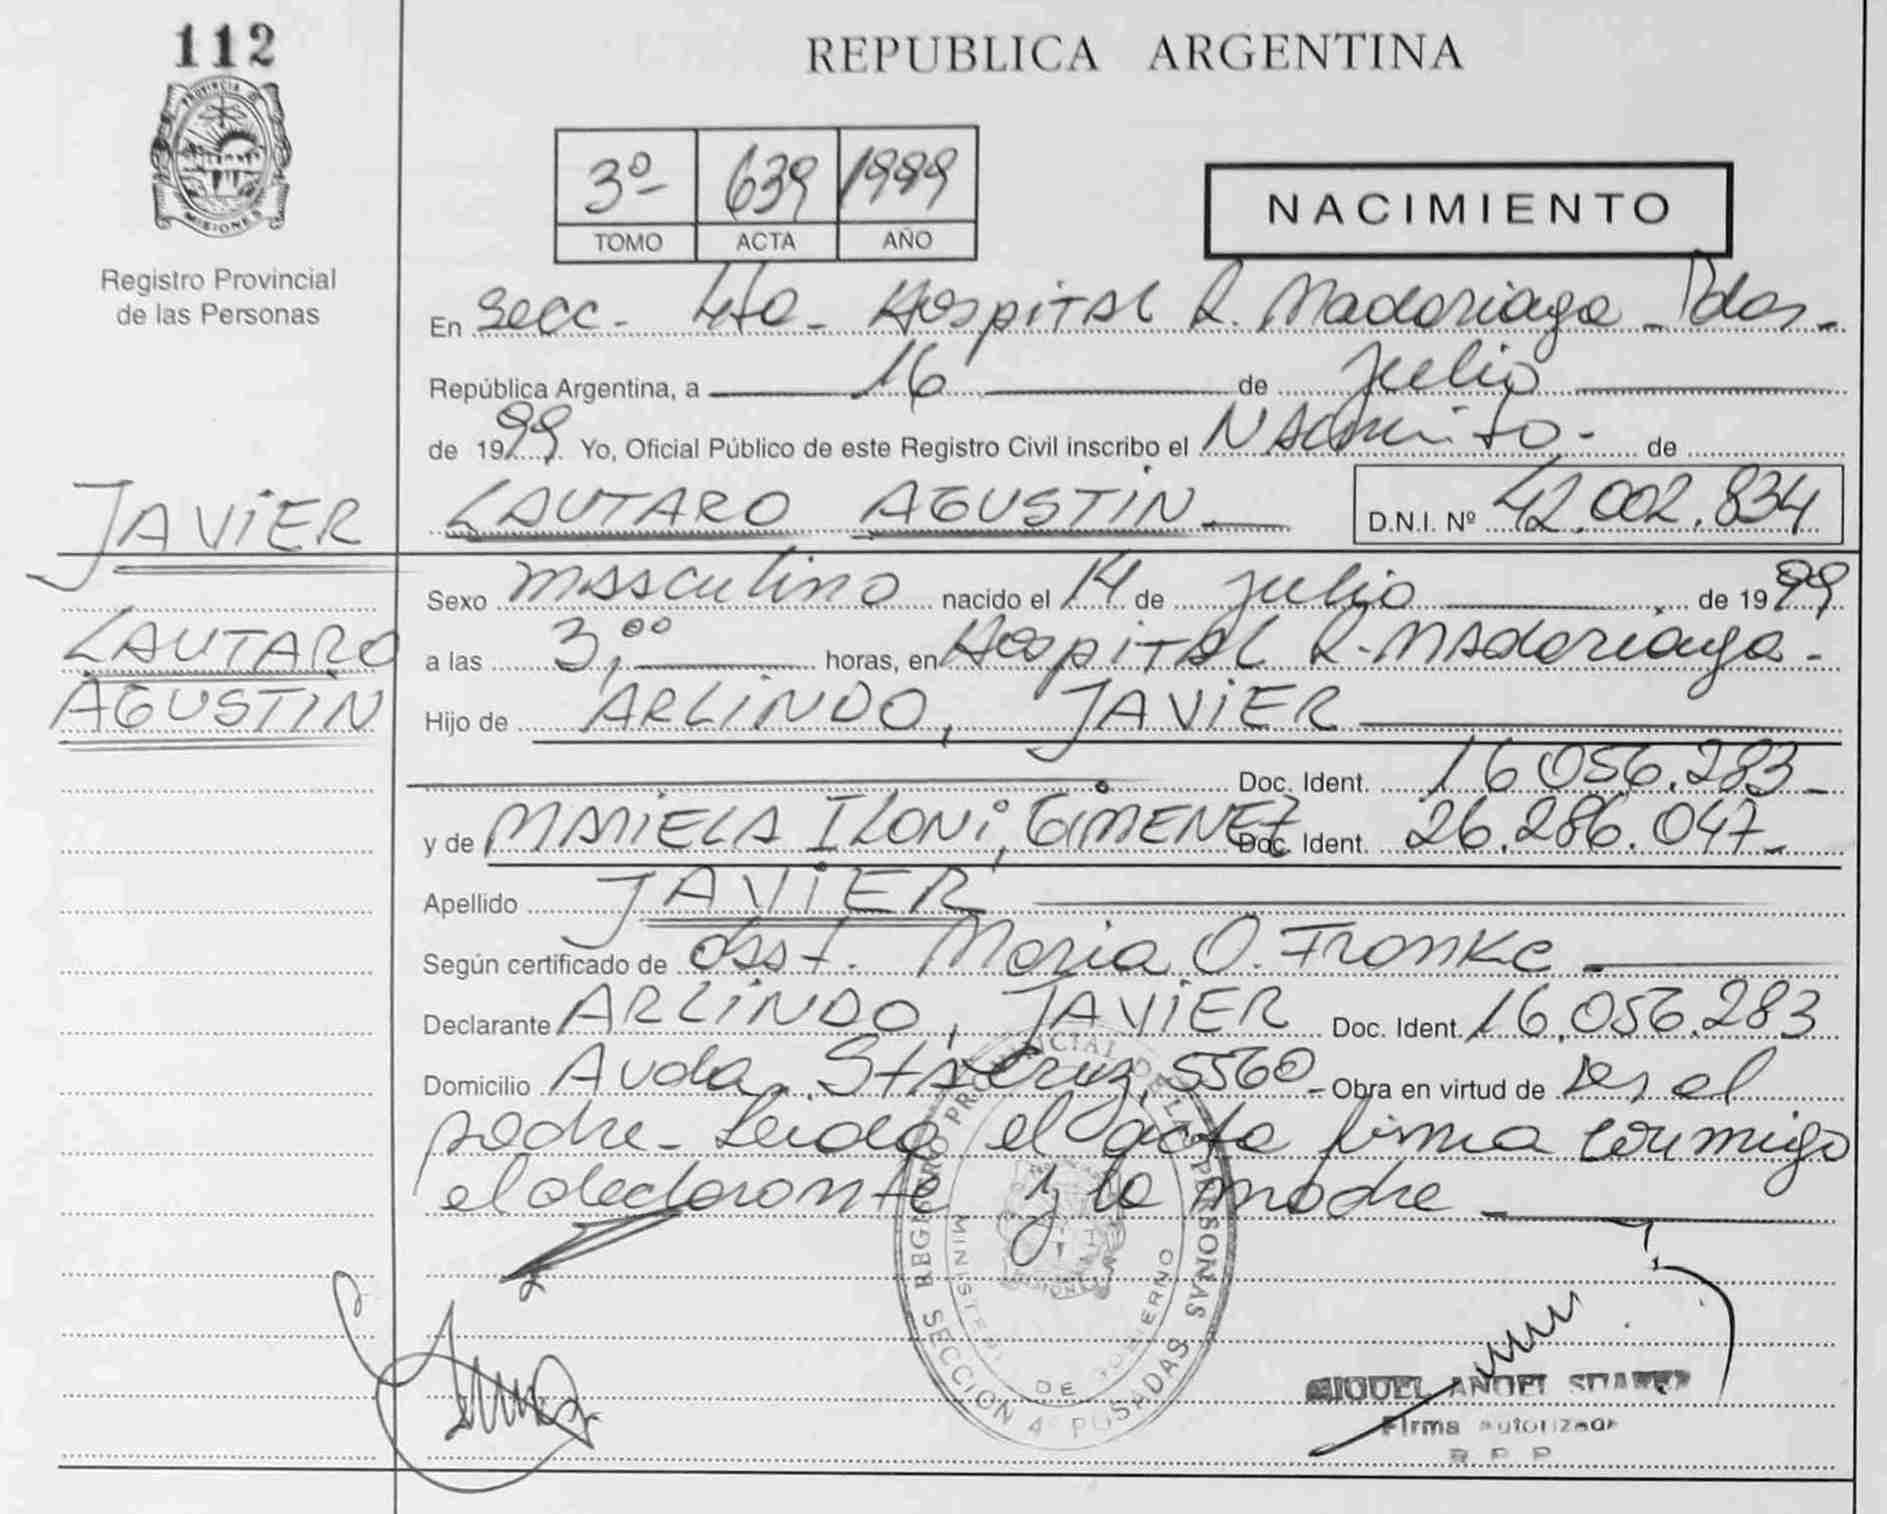 112
PROVINCIA DE
MISIONES
Registro Provincial
de las Personas
REPUBLICA ARGENTINA
3º 639 1999
TOMO ACTA AÑO
NACIMIENTO
En Secc. 4ta. Hospital R. Madariaga - Pdas.
República Argentina, a 16 de Julio
de 1999. Yo, Oficial Público de este Registro Civil inscribo el Nacimiento de
LAUTARO AGUSTIN D.N.I. Nº 42.002.834
JAVIER
LAUTARO
AGUSTIN
Sexo masculino nacido el 14 de Julio de 1999
a las 3,00 horas, en Hospital R. Madariaga.
Hijo de ARLINDO, JAVIER
Doc. Ident. 16.056.283
y de MARIELA ILONI, GIMENEZ Doc. Ident. 26.286.047
Apellido JAVIER
Según certificado de Obst. Maria O. Franke
Declarante ARLINDO, JAVIER Doc. Ident. 16.056.283
Domicilio Avda. Sta Cruz 5560 Obra en virtud de ser el
padre. Leida el acta firma conmigo
el declarante y la madre
REGISTRO PROVINCIAL DE LAS PERSONAS
SECCION 4 POSADAS
MINISTERIO DE GOBIERNO
MIGUEL ANGEL SUAREZ
Firma autorizada
R.P.P.